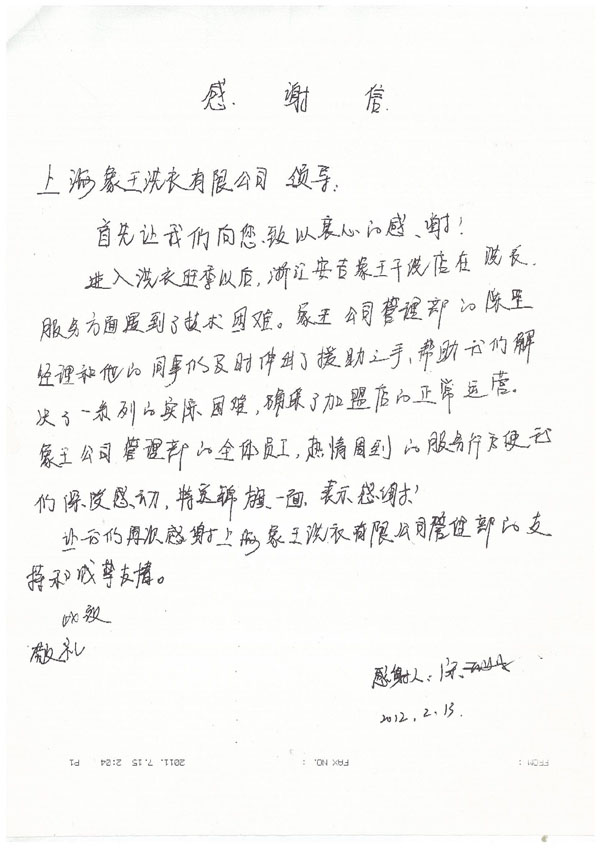 感谢信
上海象王洗衣有限公司 领导:
首先让我们向您致以衷心的感谢!
进入洗衣旺季以后,浙江安吉象王干洗店在洗衣
服务方面遇到了技术困难。象王公司管理部的陈星
经理和他的同事们及时伸出了援助之手,帮助我们解
决了一系列的实际困难,确保了加盟店的正常运营。
象王公司管理部的全体员工,热情周到的服务行为使我
们深受感动,特送锦旗一面,表示感谢!
让我们再次感谢上海象王洗衣有限公司管理部的支
持和诚挚友情。
此致
敬礼
感谢人:
2012.2.13.
FROM : FAX NO. : 2011.7.15 2:04 P1